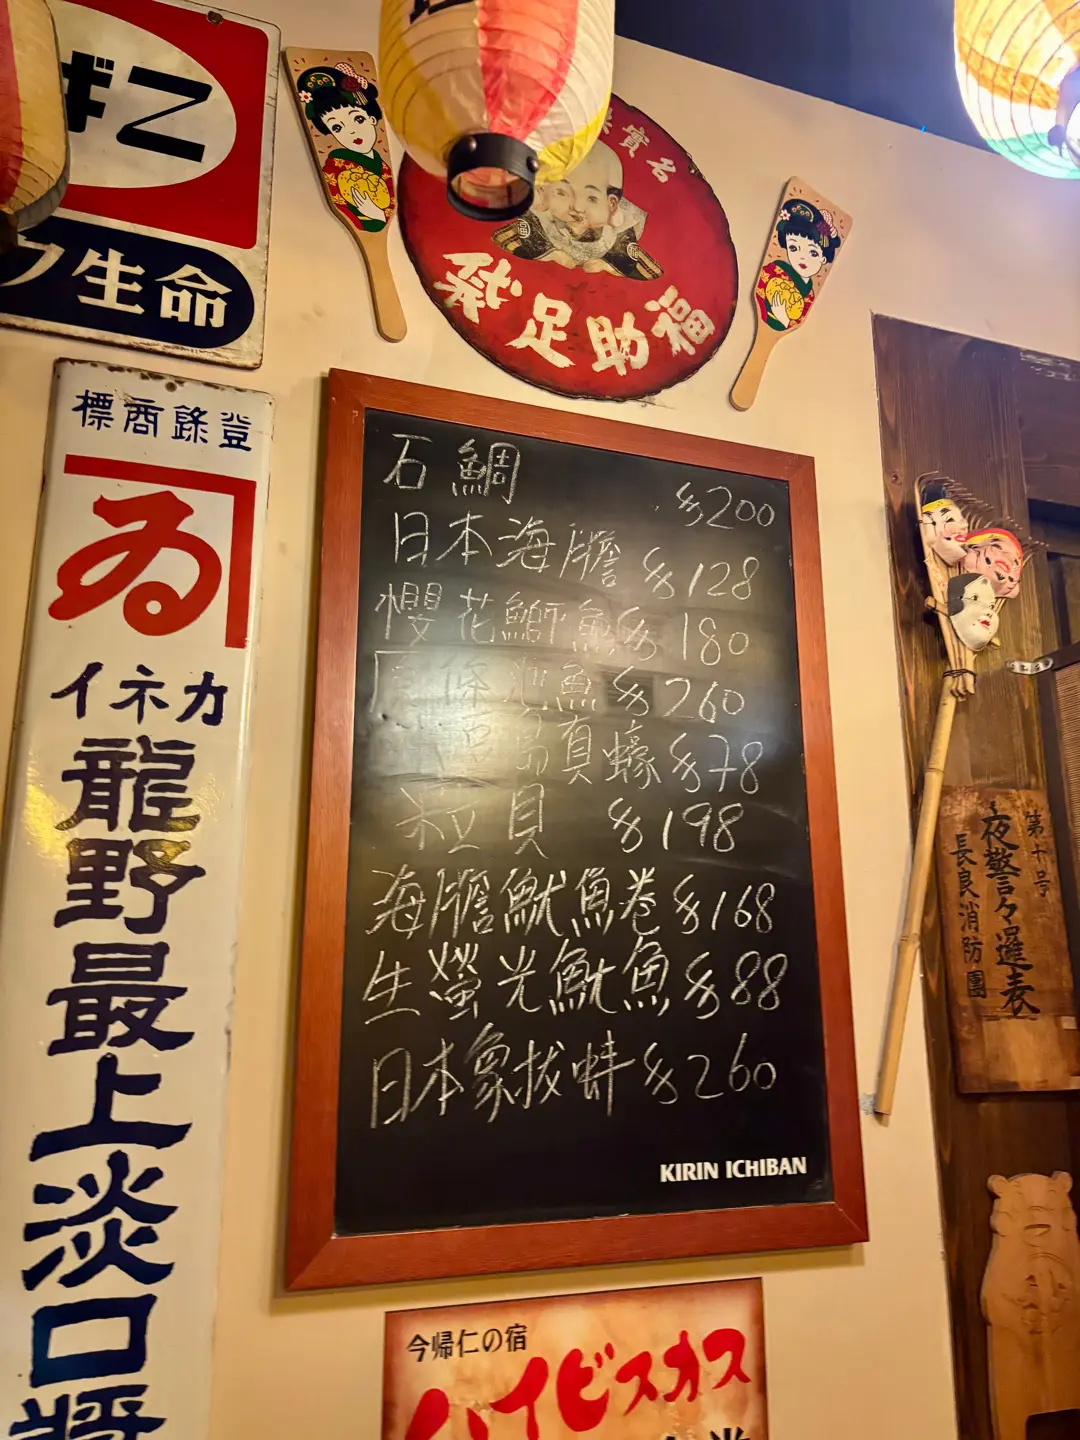 生命
登錄商標
ゐ
カネイ
龍野最上淡口醬
名實
福助足袋
石鯛 $200
日本海膽 $128
櫻花鰤魚 $180
魚 $260
島真蠔 $78
粒貝 $198
海膽魷魚卷 $168
生螢光魷魚 $88
日本象拔蚌 $260
KIRIN ICHIBAN
第十号
夜警々邏表
長良消防團
今帰仁の宿
ハイビスカス